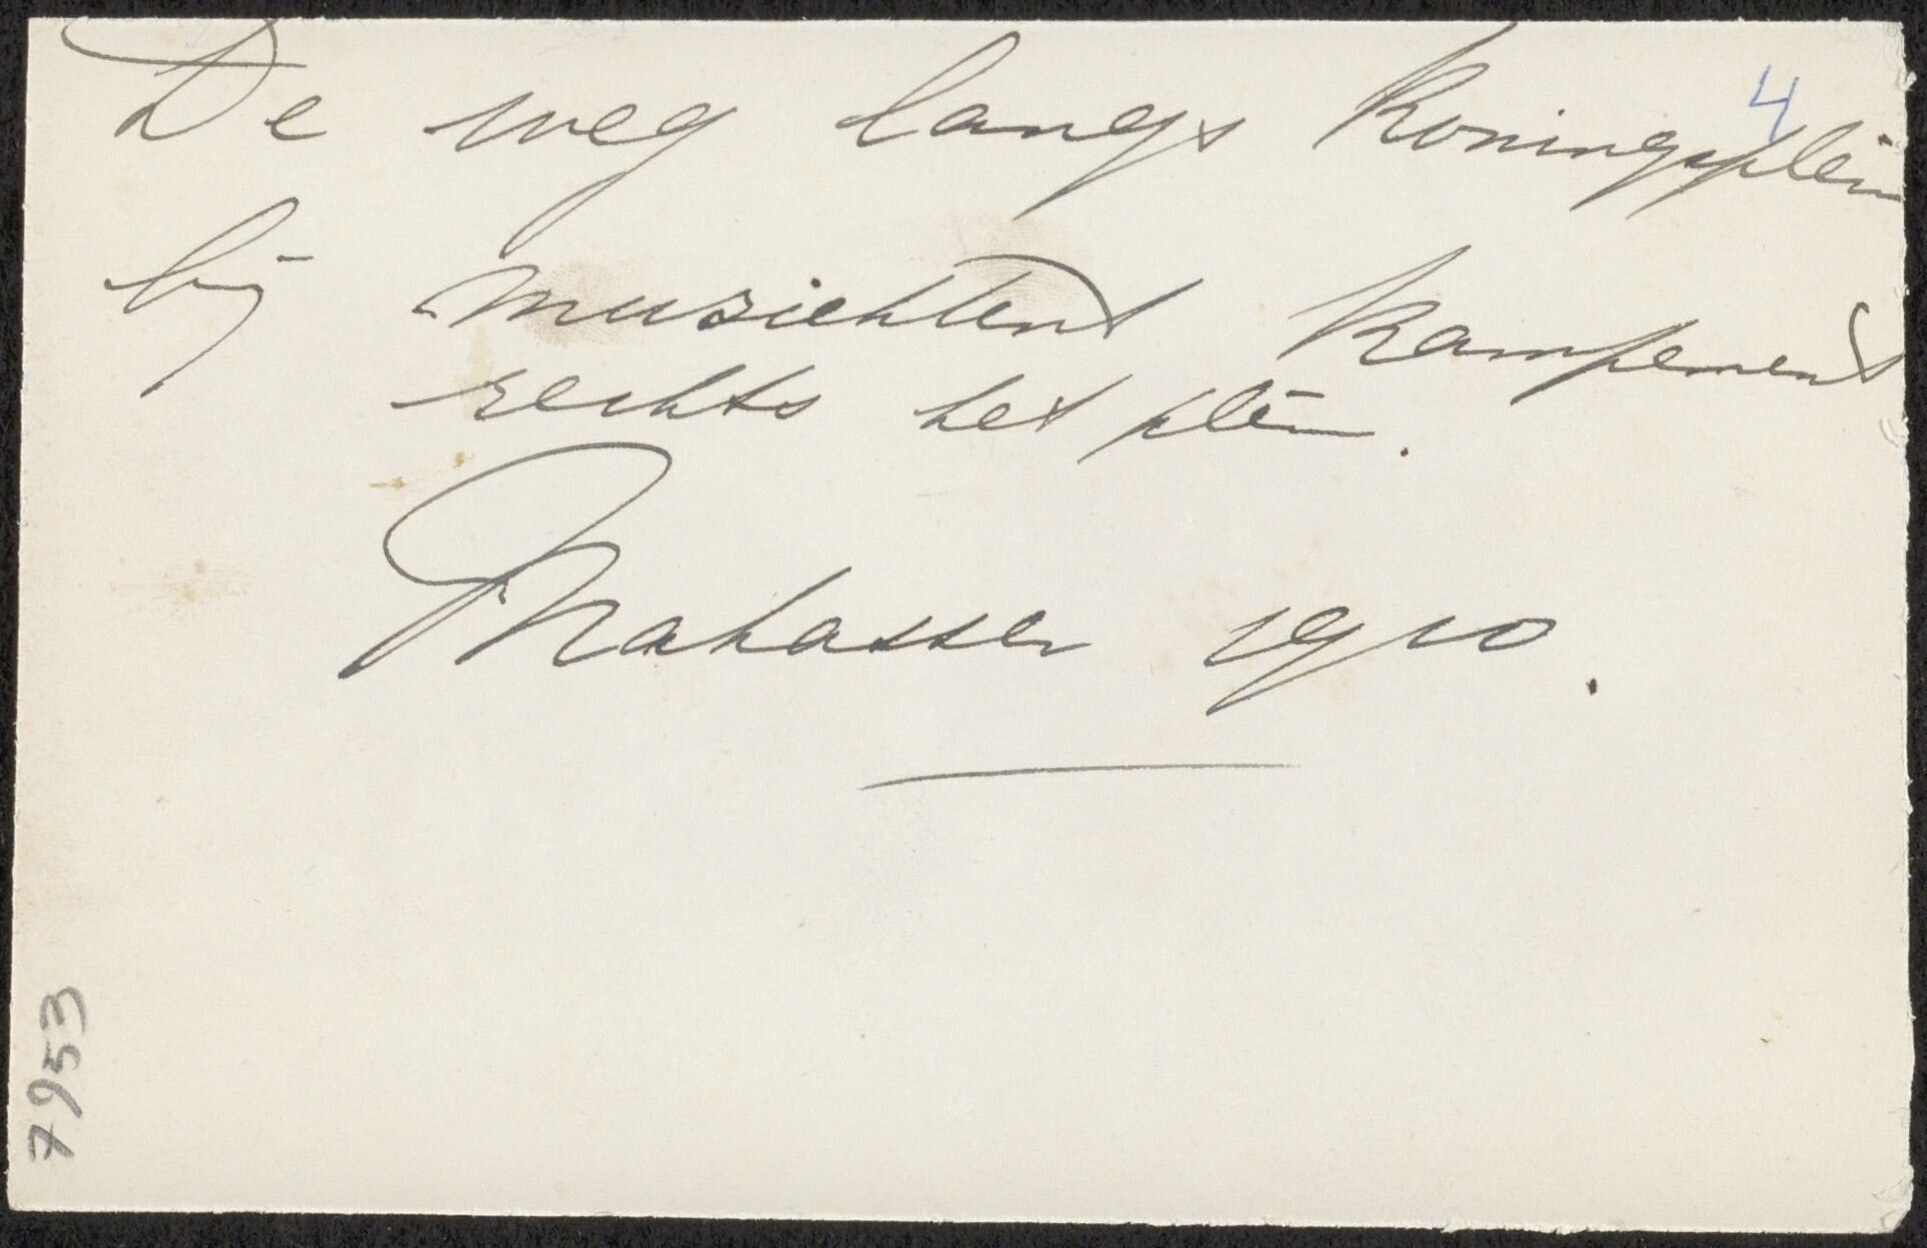 De weg langs Koningsplein
4
bij muziektent Kampement
rechts het plein.
Makasser 1910.
7953